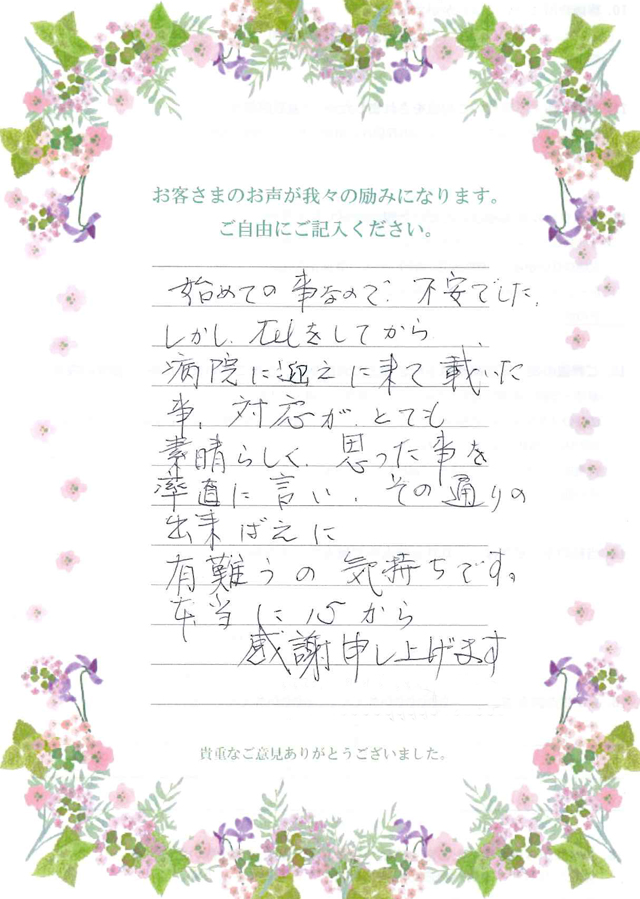 お客さまのお声が我々の励みになります。
ご自由にご記入ください。
始めての事なので、不安でした。
しかし、Telをしてから、
病院に迎えに来て載いた
事、対応が、とても
素晴らしく、思った事を
率直に言い、その通りの
出来ばえに
有難うの気持ちです。
本当に心から
感謝申し上げます
貴重なご意見ありがとうございました。